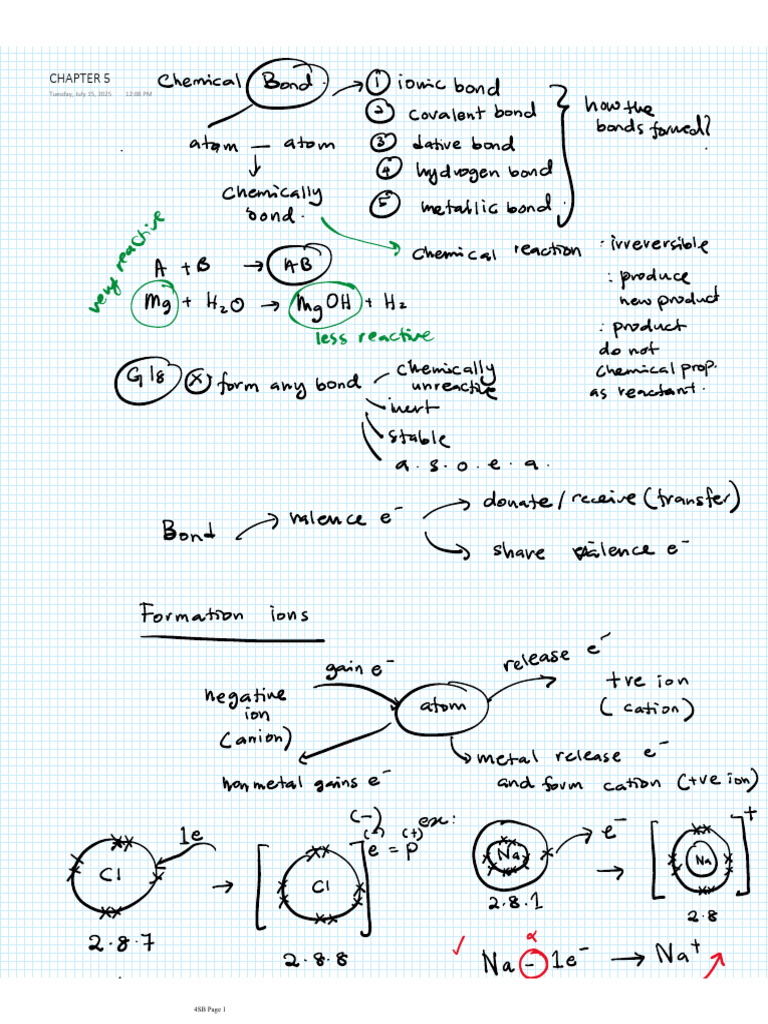 CHAPTER 5
Tuesday, July 15, 2025 12:08 PM
Chemical Bond.
① ionic bond
② covalent bond
③ dative bond
④ hydrogen bond
⑤ metallic bond.
how the
bonds formed?
atom — atom
chemically
bond.
chemical reaction : irreversible
: produce
new product
: product
do not
chemical prop.
as reactant.
very reactive
A + B → AB
Mg + H₂O → MgOH + H₂
less reactive
G18 X form any bond
chemically
unreactive
inert
stable
a.s.o.e.a.
Bond → valence e⁻
donate / receive (transfer)
share valence e⁻
Formation ions
gain e⁻
negative
ion
(anion)
atom
release e⁻
+ve ion
(cation)
nonmetal gains e⁻
metal release e⁻
and form cation (+ve ion)
1e
Cl
2.8.7
→
Cl
2.8.8
(-)
(-) (+)
e = p
ex:
Na
e⁻
2.8.1
→
Na
+
2.8
✓ Na - 1e⁻ → Na⁺
4SB Page 1